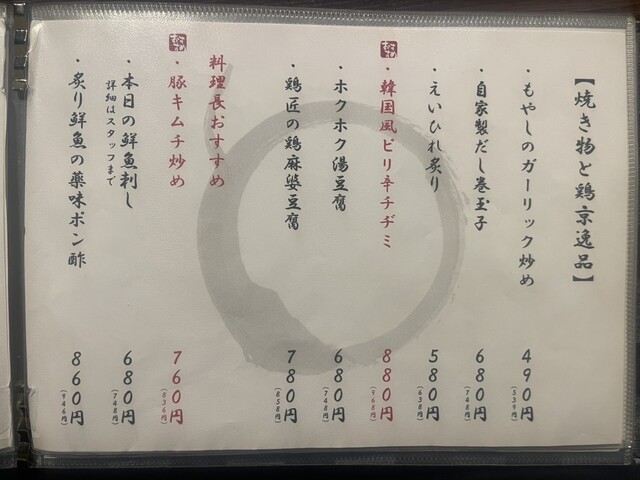 【焼き物と鶏京逸品】
・もやしのガーリック炒め 490円
(539円)
・自家製だし巻玉子 680円
(748円)
・えいひれ炙り 580円
(638円)
・韓国風ピリ辛チヂミ 880円
(968円)
・ホクホク湯豆腐 680円
(748円)
・鶏匠の鶏麻婆豆腐 780円
(858円)
料理長おすすめ
・豚キムチ炒め 760円
(836円)
・本日の鮮魚刺し 680円
詳細はスタッフまで (748円)
・炙り鮮魚の薬味ポン酢 860円
(946円)